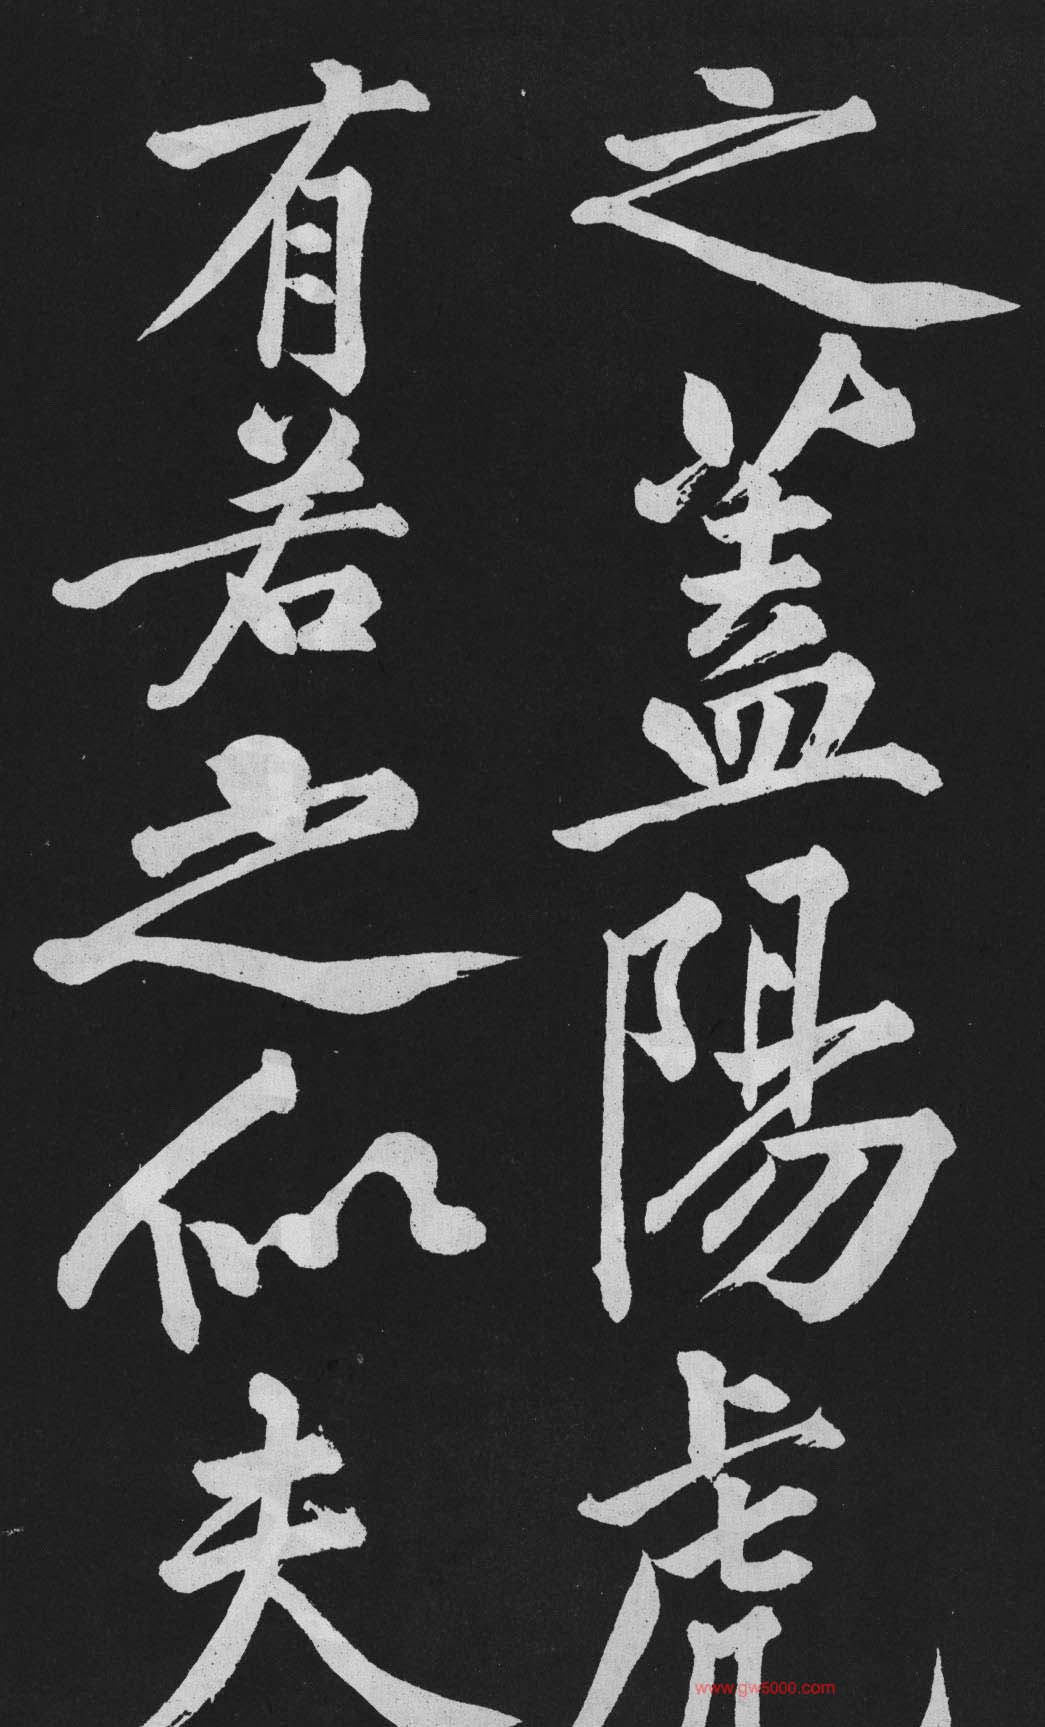 之蓋陽虎
有若之似夫
www.gw5000.com